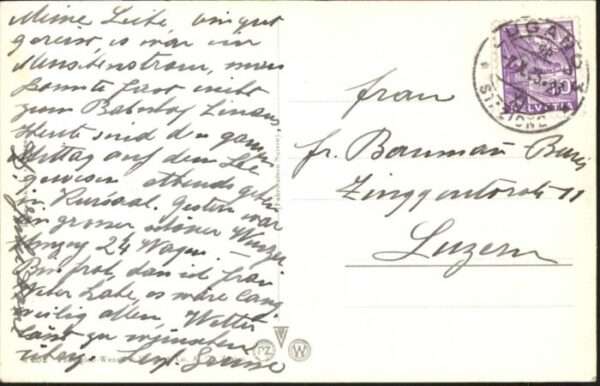 Meine Liebe bin gut
gereist, es war ein
Menschenstrom, man
konnte fast nicht
zum Bahnhof hinaus
Heute sind den ganzen
Mittag auf dem See
gewesen abends gehen
in Kursaal. Gestern war
ein grosser schöner Winzer
Umzug 24 Wagen. —
Bin froh, dass ich Frau
habe, es wäre lang
weilig allein. Wetter
lässt zu wünschen
übrig.
Frau
fr. Bauman
Luzern
LUGANO
HELVETIA